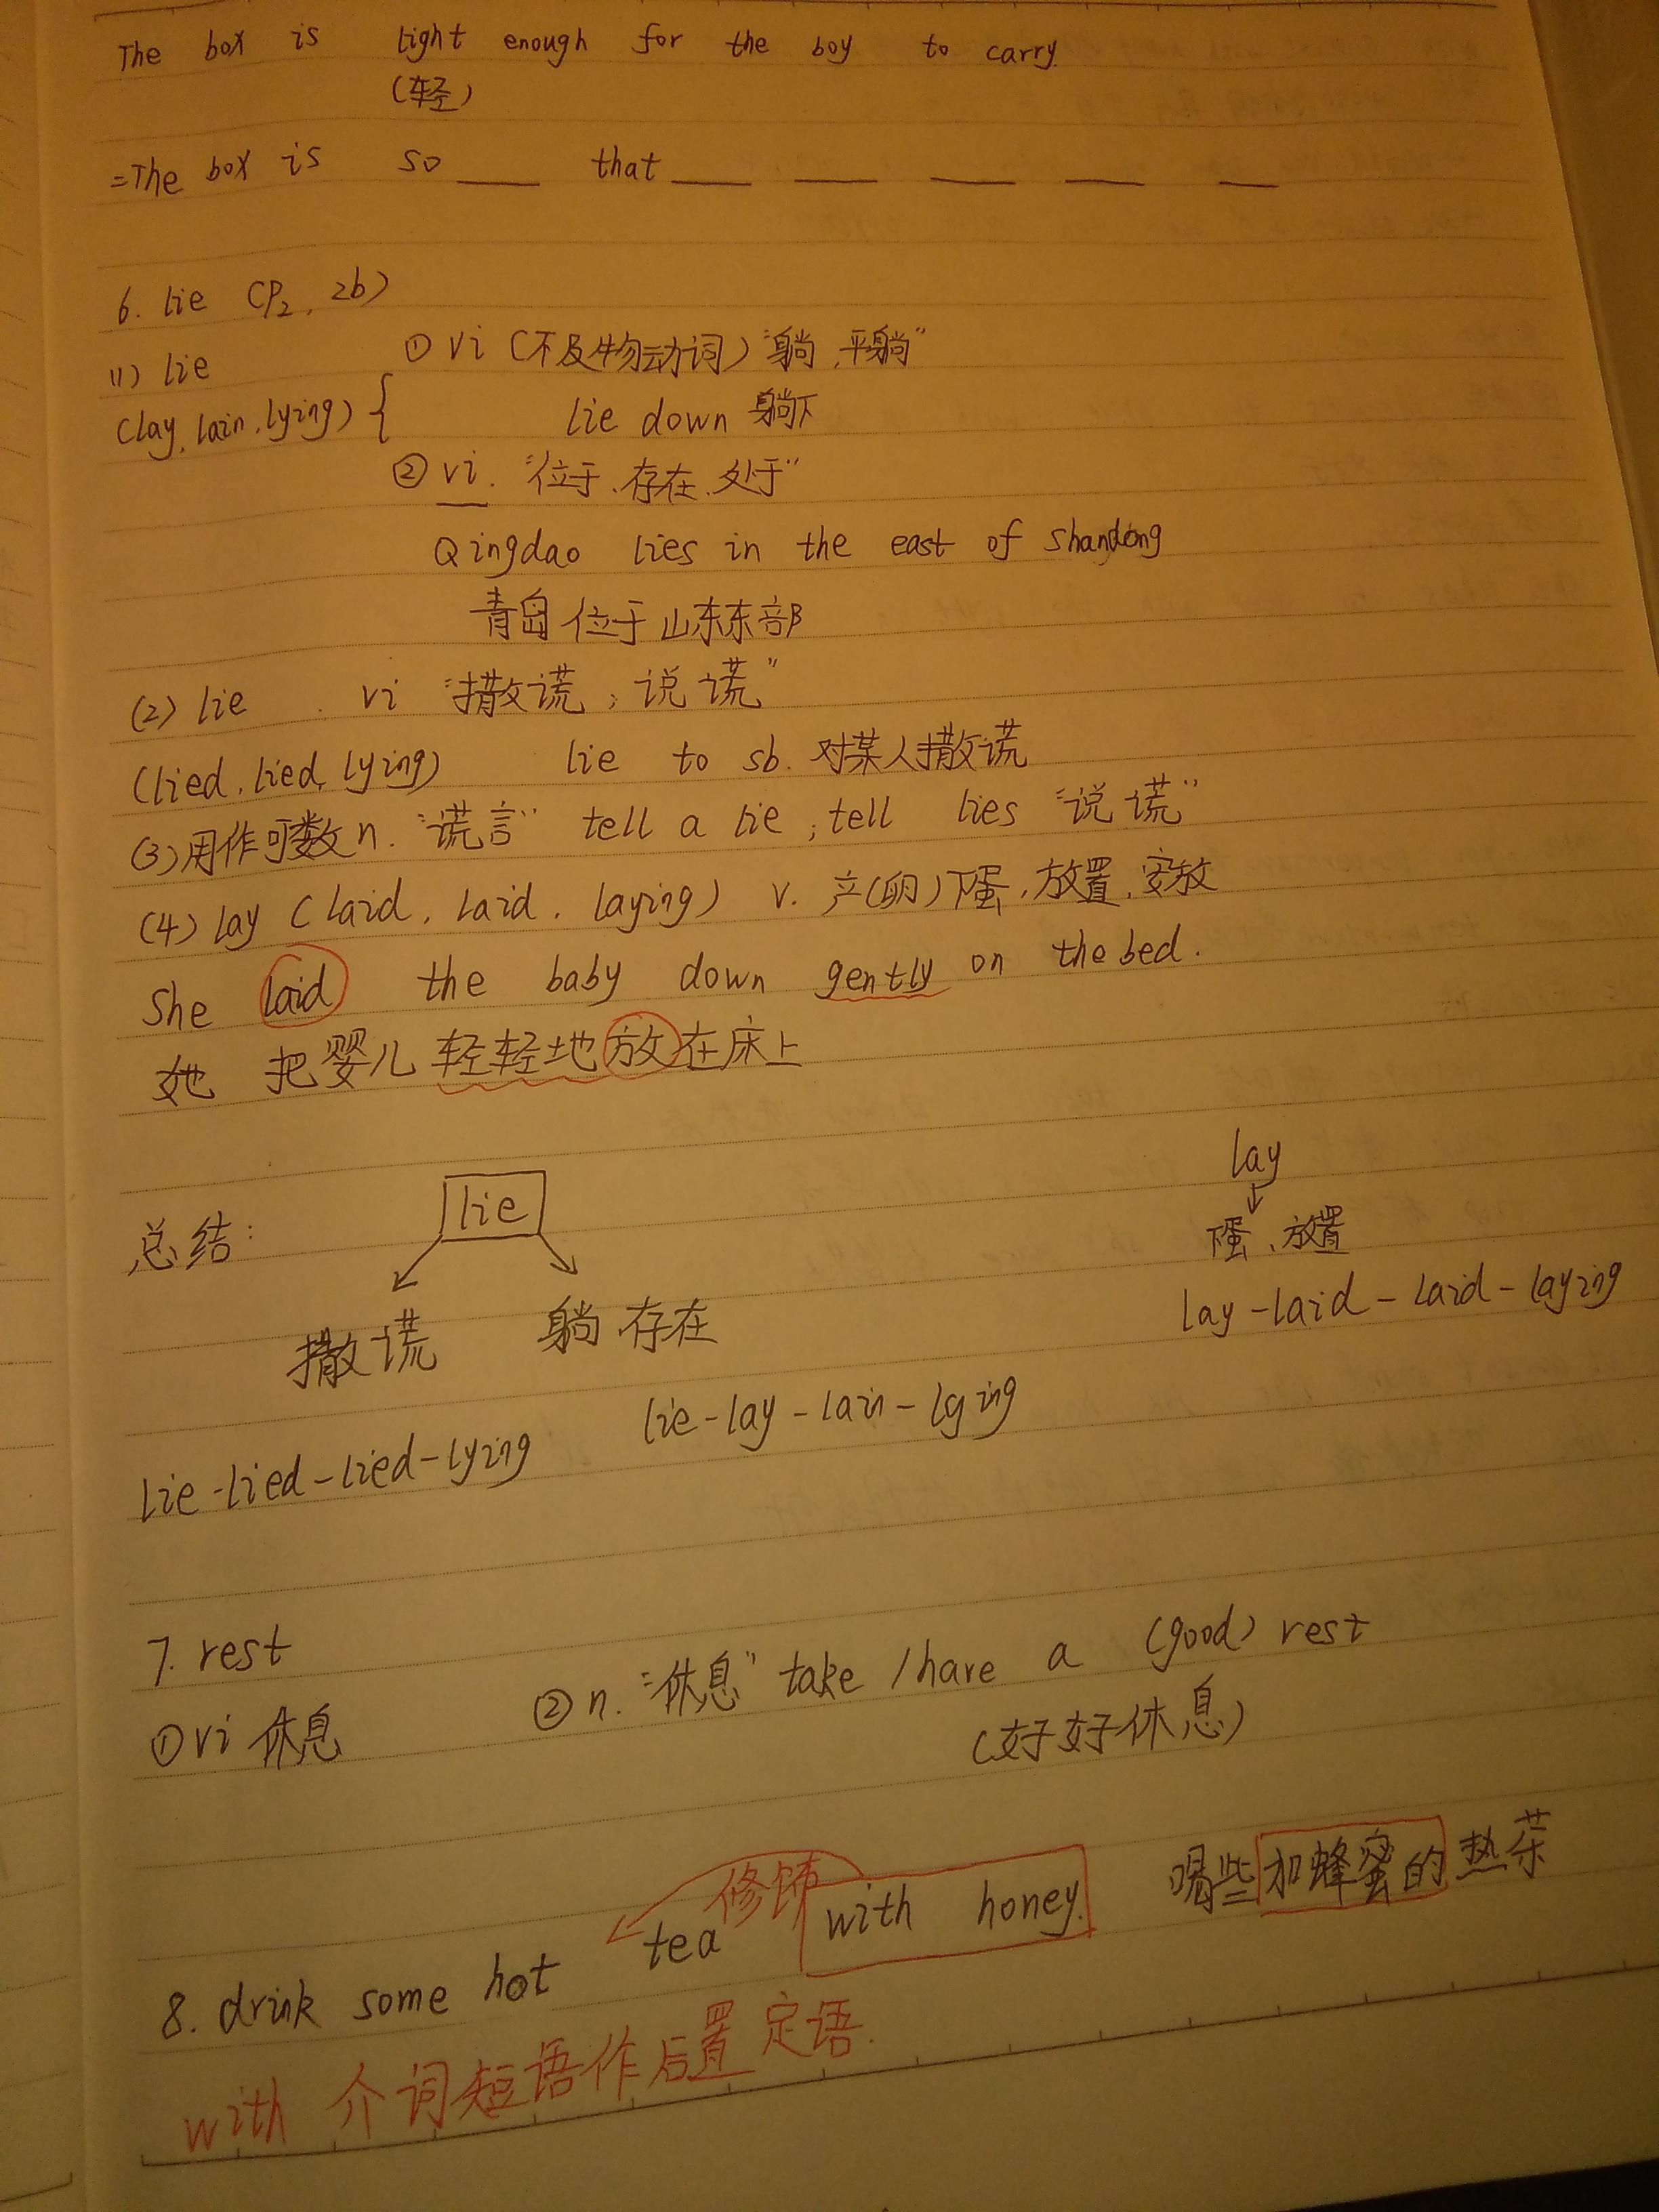 The box is light enough for the boy to carry.
(轻)
=The box is so ___ that ___ ___ ___ ___ ___
6. lie (P2, 2b)
(1) lie ① vi (不及物动词) "躺,平躺"
(lay, lain, lying) { lie down 躺下
② vi. "位于、存在、处于"
Qingdao lies in the east of shandong
青岛位于山东东部
(2) lie vi "撒谎;说谎"
(lied, lied, lying) lie to sb. 对某人撒谎
(3)用作可数n. "谎言" tell a lie ; tell lies "说谎"
(4) lay (laid, laid, laying) v. 产(卵)下蛋,放置,安放
She laid the baby down gently on the bed.
她把婴儿轻轻地放在床上
lay
总结: lie
下蛋、放置
撒谎 躺、存在
lay-laid-laid-laying
lie-lied-lied-lying lie-lay-lain-lying
7. rest
① vi 休息 ② n. "休息" take/have a (good) rest
(好好休息)
修饰
8. drink some hot tea with honey. 喝些加蜂蜜的热茶
with 介词短语作后置定语.